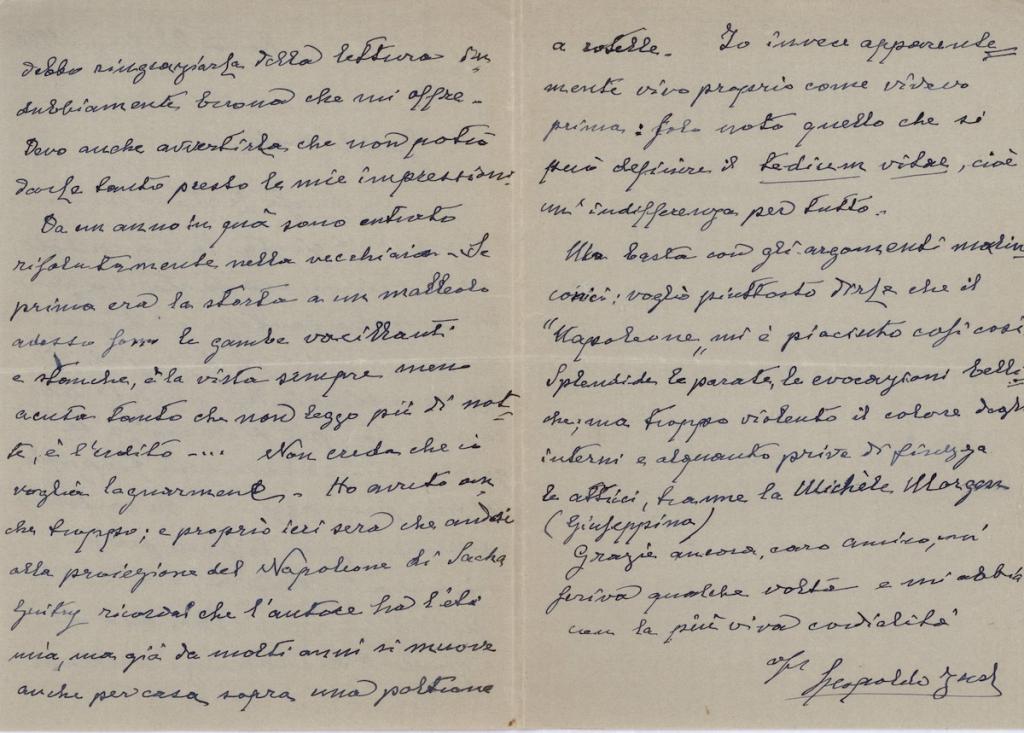 debbo ringraziarla della lettura in
dubbiamente buona che mi offre -
Devo anche avvertirla, che non potrò
darle tanto presto le mie impressioni.
Da un anno in quà sono entrato
risolutamente nella vecchiaia - Se
prima era la storta a un malleolo
adesso sono le gambe vacillanti
e stanche, è la vista sempre meno
acuta tanto che non leggo più di not-
te, è l'udito .... Non creda che io
voglia lagnarmene - Ho avuto an
che troppo; e proprio ieri sera che andai
alla proiezione del Napoleone di Sacha
Guitry ricordai che l'autore ha l'età
mia, ma già da molti anni si muove
anche per casa sopra una poltrona
a rotelle - Io invece apparente
mente vivo proprio come vivevo
prima: solo noto quello che si
può definire il tedium vitae, cioè
un'indifferenza per tutto -
Ma basta con gli argomenti malin
conici; voglio piuttosto dirle che il
"Napoleone" mi è piaciuto così così
Splendide le parate, le evocazioni belli
che; ma troppo violento il colore degli
interni e alquanto prive di finezza
le attrici, tranne la Michèle Morgan
(Giuseppina)
Grazie ancora, caro amico, mi
scriva qualche volta e mi abbia
con la più viva cordialità
Leopoldo